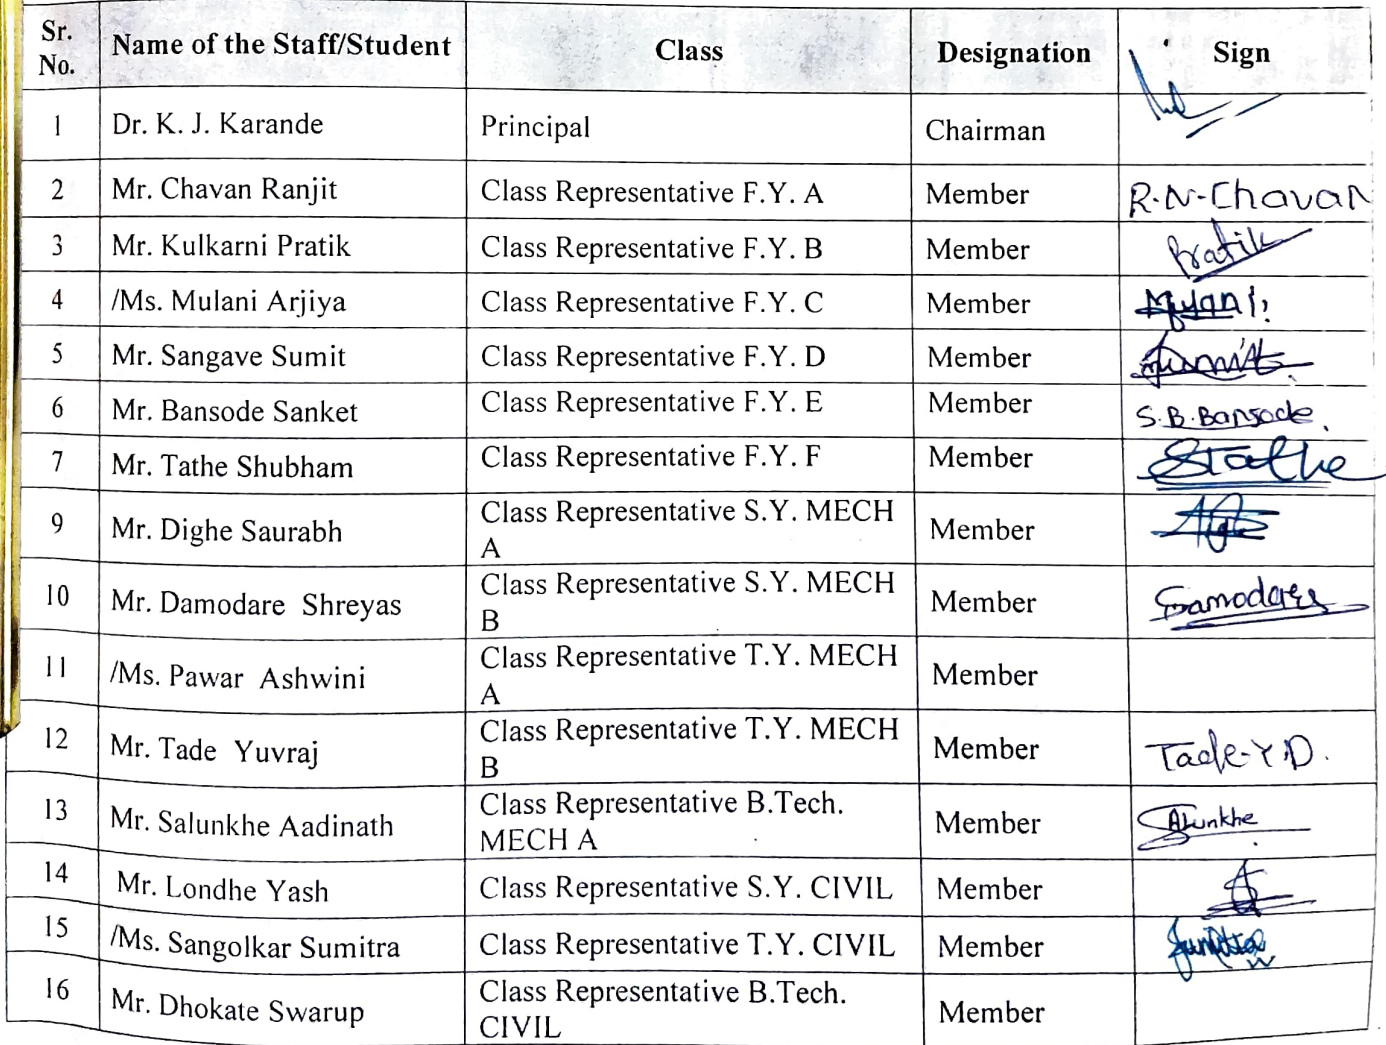 Sr. No. Name of the Staff/Student Class Designation Sign
1 Dr. K. J. Karande Principal Chairman
2 Mr. Chavan Ranjit Class Representative F.Y. A Member R.N.Chavan
3 Mr. Kulkarni Pratik Class Representative F.Y. B Member Pratik
4 /Ms. Mulani Arjiya Class Representative F.Y. C Member
5 Mr. Sangave Sumit Class Representative F.Y. D Member
6 Mr. Bansode Sanket Class Representative F.Y. E Member S.B.Bansode.
7 Mr. Tathe Shubham Class Representative F.Y. F Member STathe
9 Mr. Dighe Saurabh Class Representative S.Y. MECH
A Member
10 Mr. Damodare Shreyas Class Representative S.Y. MECH
B Member
11 /Ms. Pawar Ashwini Class Representative T.Y. MECH
A Member
12 Mr. Tade Yuvraj Class Representative T.Y. MECH
B Member Tade.Y.D.
13 Mr. Salunkhe Aadinath Class Representative B.Tech.
MECH A Member Salunkhe
14 Mr. Londhe Yash Class Representative S.Y. CIVIL Member
15 /Ms. Sangolkar Sumitra Class Representative T.Y. CIVIL Member
16 Mr. Dhokate Swarup Class Representative B.Tech.
CIVIL Member